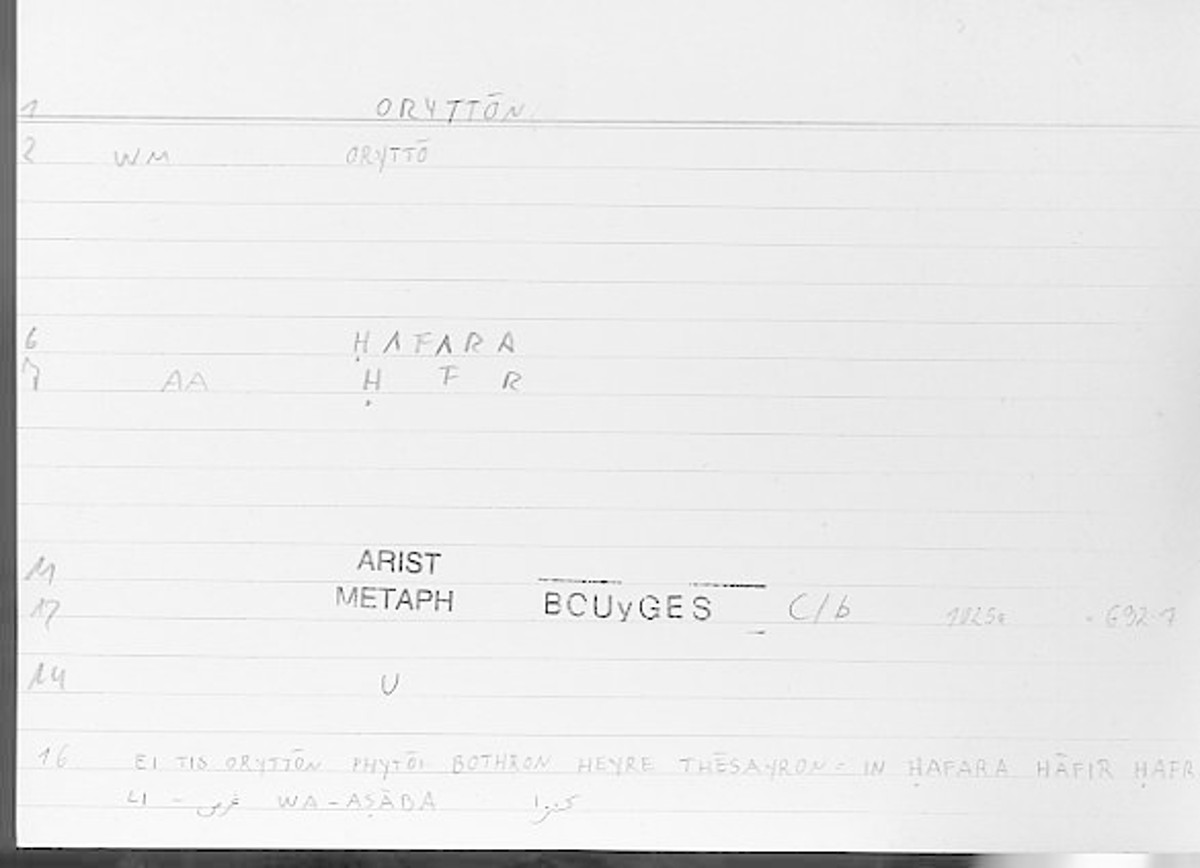 1 ORYTTŌN
2 WM ORYTTŌ
6 ḤAFARA
7 AA Ḥ F R
11 ARIST
12 METAPH BCUyGES C/b 1025a - 692.7
14 U
16 EI TIS ORYTTŌN PHYTŌI BOTHRON HEYRE THĒSAYRON = IN ḤAFARA ḤĀFIR ḤAFR
LI - غرس WA-AṢĀBA كنزا